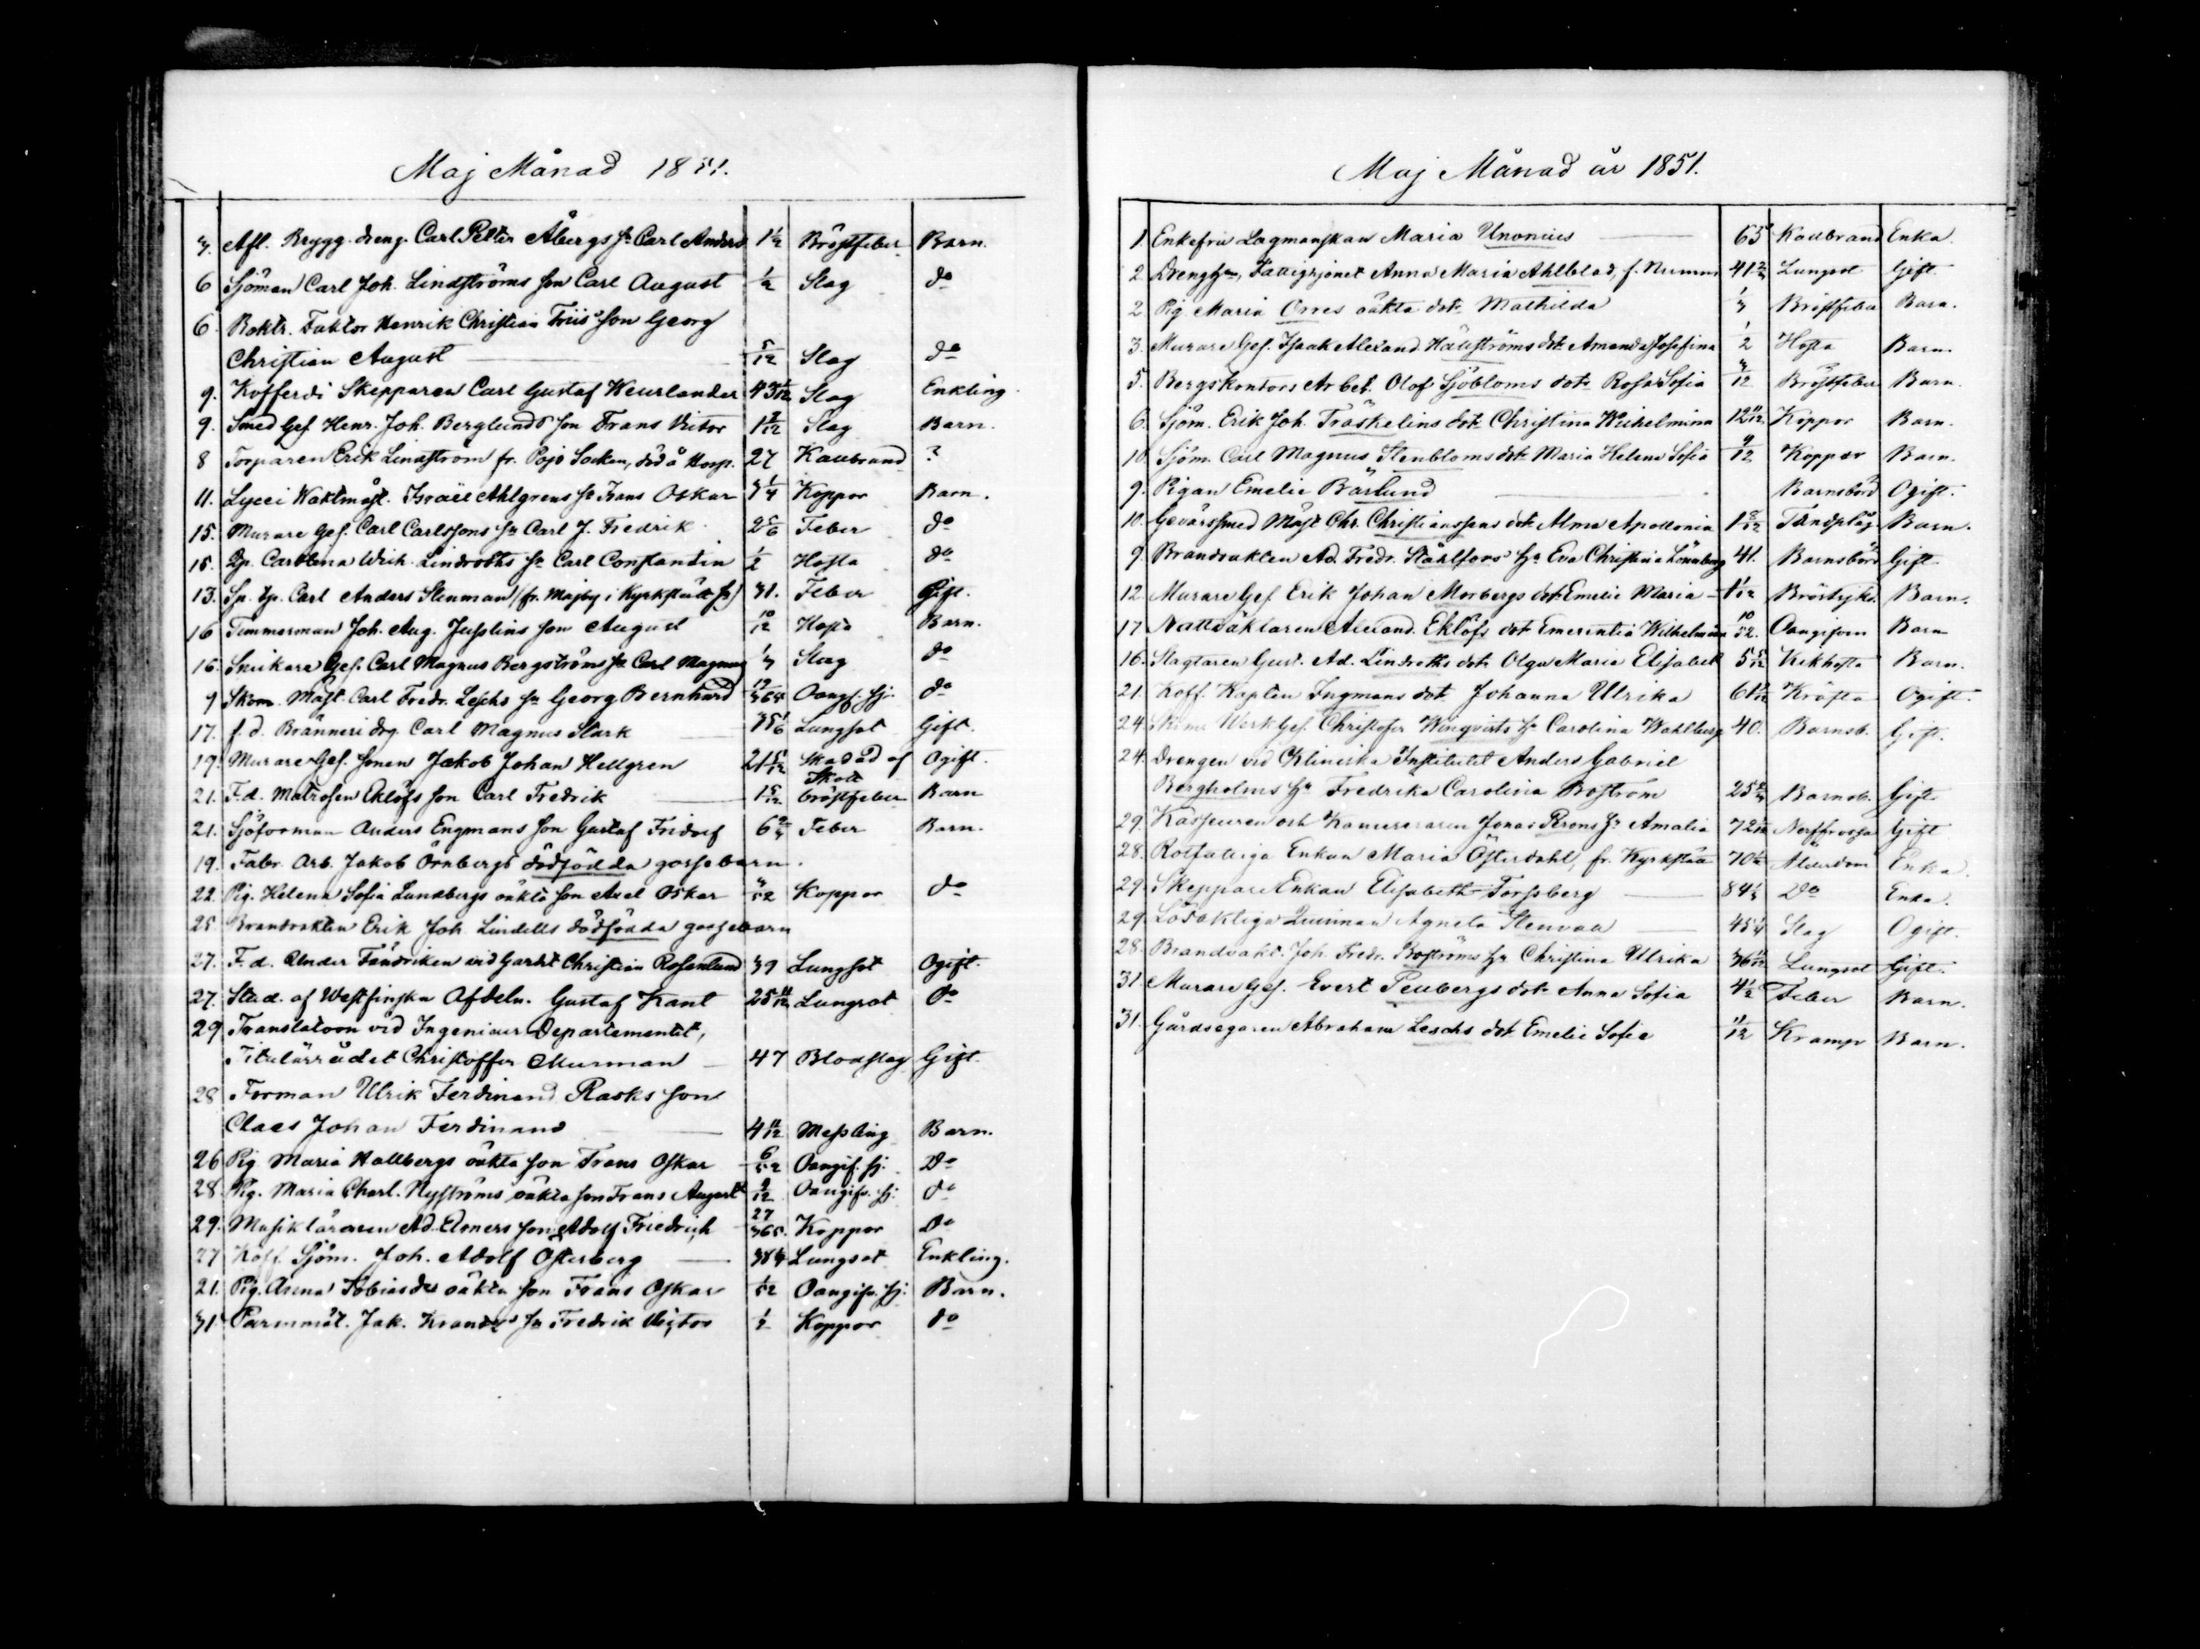 Maj Månad 1851.
3. Afl. Brygg. dreng. Carl Petter Åbergs sn Carl Anders 1 1/2 Bröstfeber Barn.
6 Sjöman Carl Joh. Lindströms son Carl August 1/2 Slag do
6. Boktr. Faktor Henrik Christian Friis' son Georg
Christian August 5/12 Slag do
9. Kofferdi Skepparen Carl Gustaf Weurlander Slag Enkling
9. Smed Gef. Henr. Joh. Berglunds son Frans Victor Slag Barn.
8 Torparen Erik Lindström fr. Pojo Socken, död å Hosp. 27 Kallbrand ?
11. Lycei Waktmäst. Israel Ahlgrens sn Frans Oskar 3 1/4 Koppor Barn.
15. Murare Gef. Carl Carlssons sn Carl J. Fredrik 2 5/6 Feber do
15. Carolina Wilh. Lindroths sn Carl Constantin 1/2 Hosta do
13. Carl Anders Stenman (fr. Majby i Kyrkslätt sn) 31. Feber Gift.
16 Timmerman Joh. Aug. Juslins son August 10/12 Hosta Barn.
16. Snickare Gef. Carl Magnus Bergströms sn Carl Magnus 1/3 Slag do
9 Skom. Mäst. Carl Fredr. Leschs sn Georg Bernhard 19/365 Oangf. sj. do
17. f. d. Bränneri drg. Carl Magnus Stark 35 1/6 Lungsot Gift.
19. Murare Gef. sonen Jakob Johan Hellgren 21 5/12 Skadad af Skott Ogift.
21. F.d. Matrosen Eklöfs son Carl Fredrik 1 5/12 bröstfeber Barn
21. Sjöforman Anders Engmans son Gustaf Fridolf 6 2/3 Feber Barn.
19. Fabr. Arb. Jakob Örnbergs dödfödda gossebarn.
22. Pig. Helena Sofia Lundbergs oäkta son Axel Oskar 3/52 Koppor do
25 Brandvakten Erik Joh. Lindells dödfödda gossebarn
27. F. d. Under Fändriken vid Gardet Christian Rosenlund 39 Lungsot Ogift.
27. Stud. af Westfinska Afdeln. Gustaf Kant 25 11/12 Lungsot do
29 Translatorn vid Ingenieur Departementet,
Titulärrådet Christoffer Murman 47 Blodslag Gift.
28 Forman Ulrik Ferdinand Rasks son
Claes Johan Ferdinand 4 11/12 Messling Barn.
26 Pig. Maria Hallbergs oäkta son Frans Oskar 6/52 Oangif. sj. Do
28. Pig. Maria Charl. Nyströms oäkta son Frans August 9/12 Oangifv. sj. do
29. Musikläraren Ad. Elmers son Adolf Friedrich 27/365. Koppor Do
27 Koff. Sjöm. Joh. Adolf Österberg Lungsot Enkling.
21. Pig. Anna Tobiasdrs oäkta son Frans Oskar 1/52 Oangifv. sj. Barn.
31 Parmmät. Jak. sn Fredrik Victor 1/2 Koppor do
Maj Månad år 1851.
1. Enkefru Lagmanskan Maria Unonius 65 Kallbrand Enka.
2 Drengh., Fattighjonet Anna Maria Ahlblad, f. Numm 41 2/3 Lungsot Gift.
2. Pig. Maria Orres oäkta dotr Mathilda 1/3 Bröstfeber Barn.
3. Murare Gef. Isaak Alexand. Hällströms dotr Amanda Josefina 1/2 Hosta Barn.
5. Bergskontors Arbet. Olof Sjöbloms dotr Rosa Sofia 3/12 Bröstfeber Barn.
6. Sjöm. Erik Joh. Träskelins dotr Christina Wilhelmina 12 11/12 Koppor Barn.
10. Sjöm. Carl Magnus Stenbloms dotr Maria Helena Sofia 9/12 Koppor Barn.
9. Pigan Emelie Bärlund Barnsbörd Ogift.
10. Gevärssmed Mäst. Chr. Christianssens dotr Alma Apollonia 1 8/12 Tandplåg. Barn.
9. Brandvakten Ad. Fredr. Ståhlfors' hu Eva Christina Lönnberg 41. Barnsbörd Gift.
12 Murare Gef. Erik Johan Morbergs dotr Emelie Maria 1 1/12 Brösts Barn.
17 Nattväktaren Alexand. Eklöfs dotr Emerentia Wilhelmina 10/52. Oangifven Barn
16. Slagtaren Gust. Ad. Lindroths dotr Olga Maria Elisabet 5 5/12 Kikhosta Barn.
21. Koff. Kapten Ingmans dotr Johanna Ulrika Kräfta Ogift.
24. Werk Gef. Christofer Winqvists hu Carolina Wahlberg 40. Barnsb. Gift.
24. Drengen vid Kliniska Institutet Anders Gabriel
Bergholms hu Fredrika Carolina Boström 25 2/3 Barnsb. Gift.
29. Kasseuren och Kamereraren Jonas Perons hu Amalia Nerffrossa Gift
28. Rotfattiga Enkan Maria Österdahl, fr. Kyrkslätt 70 1/2 Ålderdom Enka.
29. Skeppare Enkan Elisabeth Forssberg 84 1/3 Do Enka.
29. Lösakliga Quinnan Agneta Stenvall 45 1/4 Slag Ogift.
28. Brandvakt. Joh. Fredr. Boströms hu Christina Ulrika 36 11/12 Lungsot Gift.
31. Murare Gef. Evert Penbergs dotr Anna Sofia 4 1/2 Feber Barn.
31. Gårdsegaren Abraham Leschs dotr Emelie Sofie 11/12 Kramp Barn.